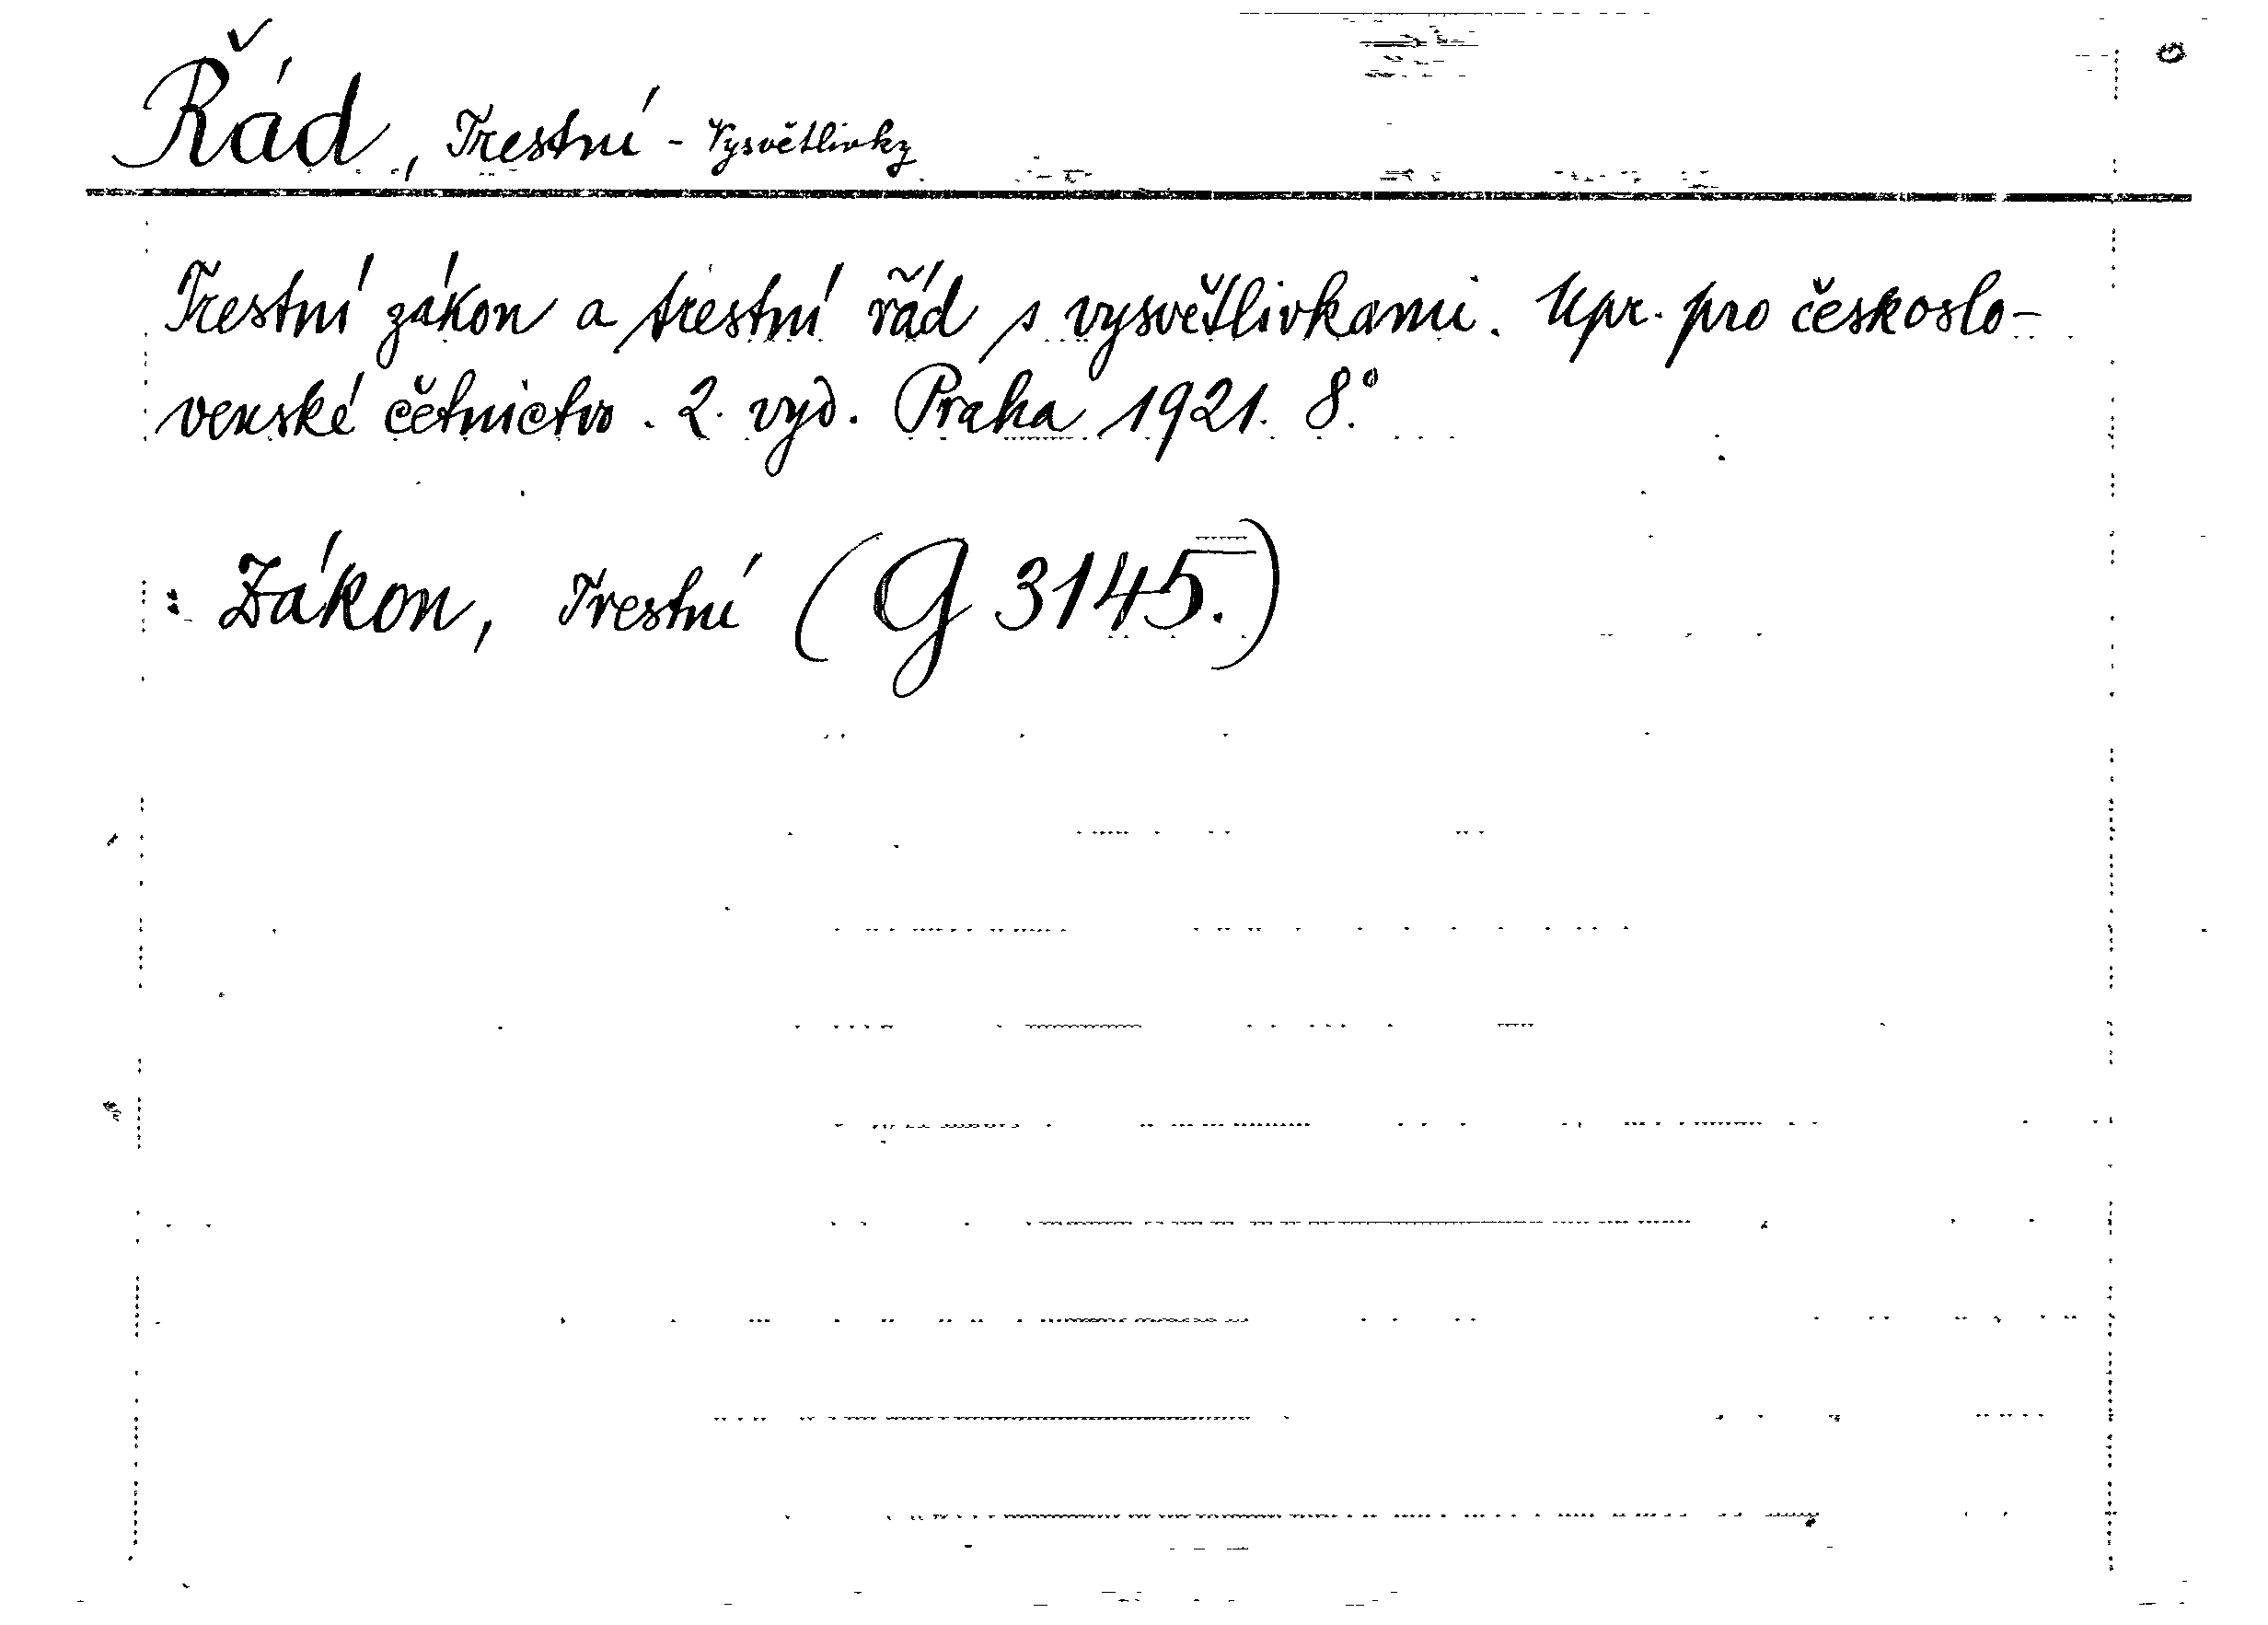 Řád, Trestní - Vysvětlivky
Trestní zákon a trestní řád s vysvětlivkami. Upr. pro českoslo-
venské četnictvo. 2. vyd. Praha 1921. 8°.
: Zákon, Trestní (G 3145.)